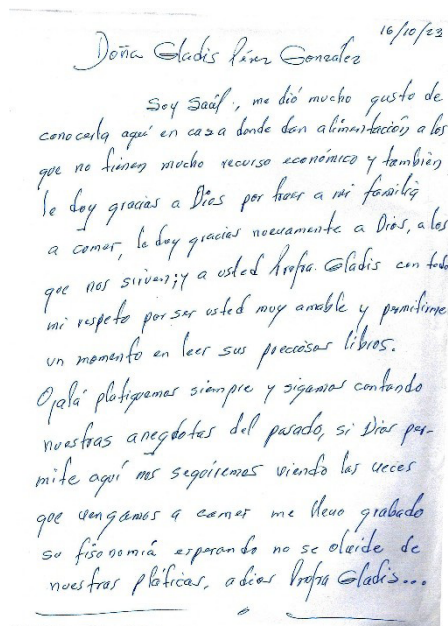 16/10/23
Doña Gladis Pérez González
Soy Saúl, me dió mucho gusto de
conocerla aquí en casa donde dan alimentación a los
que no tienen mucho recurso económico y también
le doy gracias a Dios por traer a mi familia
a comer, le doy gracias nuevamente a Dios, a los
que nos sirven; y a usted Profra. Gladis con todo
mi respeto por ser usted muy amable y permitirme
un momento en leer sus preciosos libros.
Ojalá platiquemos siempre y sigamos contando
nuestras anegdotas del pasado, si Dios per-
mite aquí nos seguiremos viendo las veces
que vengamos a comer me llevo grabado
su fisonomía esperando no se olvide de
nuestras pláticas, adios Profra Gladis...